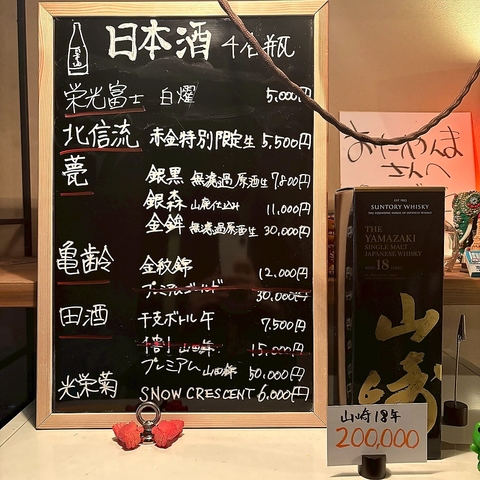 日本酒 4合瓶
栄光冨士 白燿 5,000円
北信流 赤金特別限定生 5,500円
甍 銀黒 無濾過原酒生 7,800円
銀森 山廃仕込み 11,000円
金鉾 無濾過原酒生 30,000円
亀齢 金紋錦 12,000円
プレミアムゴールド 30,000円
田酒 干支ボトル午 7,500円
山田錦 15,000円
プレミアム 山田錦 50,000円
光栄菊 SNOW CRESCENT 6,000円
さんへ
SUNTORY WHISKY
THE
YAMAZAKI
SINGLE MALT
JAPANESE WHISKY
18
山崎
山崎18年
200,000